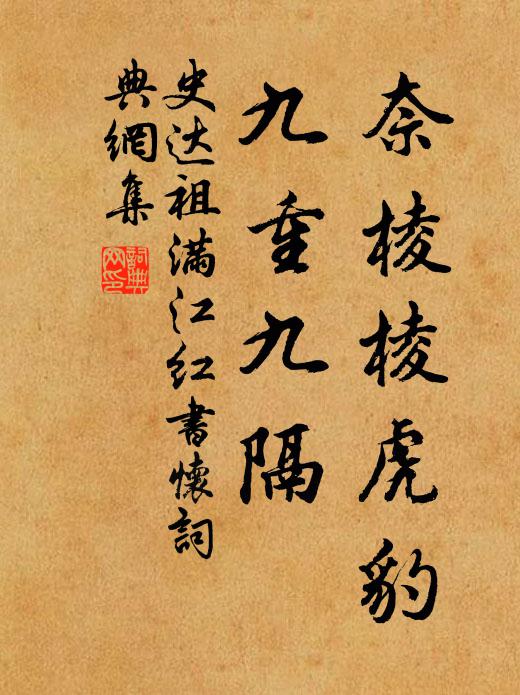 奈棱棱虎豹
九重九隔
史达祖满江红书怀词
典網集
詞典網印